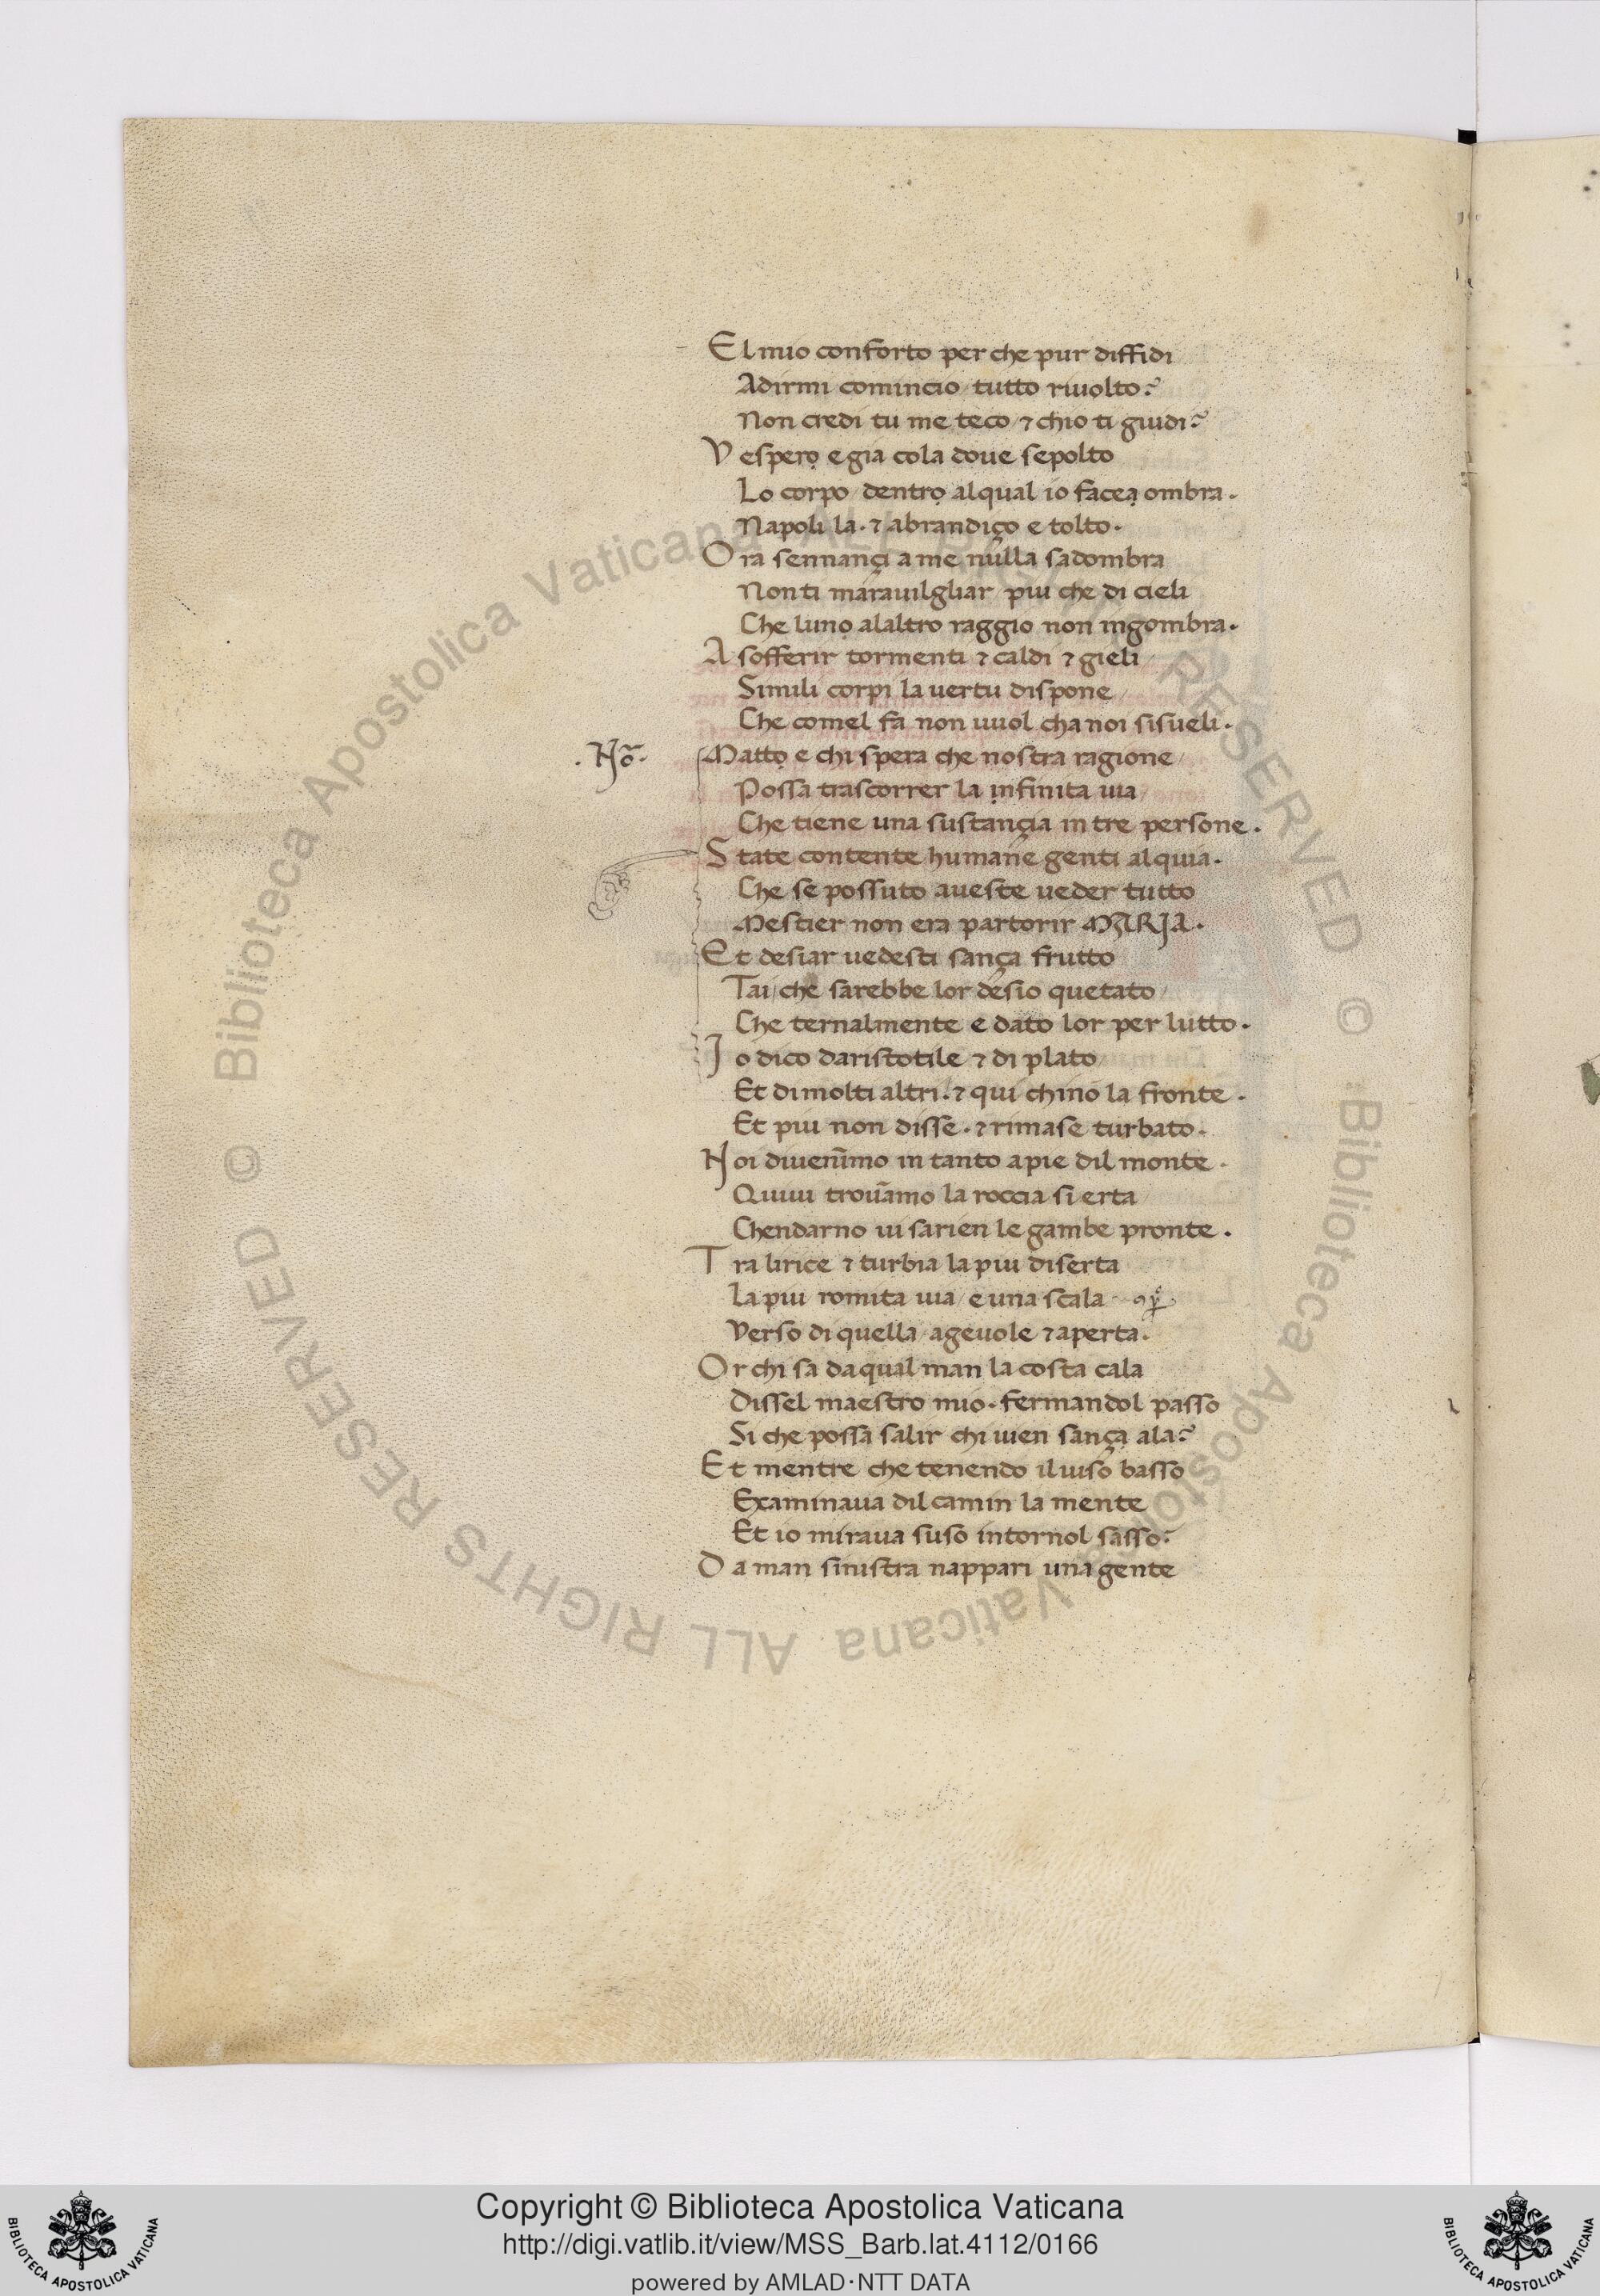 El mio conforto per che pur diffidi
Adirmi comincio / tutto riuolto?
Non credi tu me teco / ⁊ chio ti guidi?
Vespero e gia cola doue sepolto
Lo corpo / dentro alqual io facea ombra.
Napoli la. ⁊ abrandiço e tolto.
Ora sennançi a me nulla sadombra
Non ti marauilgliar / piu che di cieli
Che luno alaltro raggio non ingombra.
A sofferir tormenti ⁊ caldi ⁊ gieli /
Simili corpi la uertu dispone /
Che comel fa non uuol cha noi sisueli.
. No͂ .
Matto e chi spera che nostra ragione /
Possa trascorrer la infinita uia /
Che tiene una sustançia in tre persone.
State contente humane genti al quia.
Che se possuto aueste ueder tutto
Mestier non era partorir MARIA.
Et desiar uedesti sança frutto
Tai / che sarebbe lor desio quetato /
Che ternalmente e dato lor per lutto.
Io dico daristotile ⁊ di plato
Et di molti altri. ⁊ qui chino la fronte.
Et piu non disse. ⁊ rimase turbato.
Noi diuenim̄o in tanto apie dil monte.
Quiui trouam̄o la roccia si erta /
Chendarno ui sarien le gambe pronte.
Tra lirice ⁊ turbia la piu diserta
La piu romita uia / e una scala
Verso di quella / ageuole ⁊ aperta.
Or chi sa daqual man la costa cala
Dissel maestro mio. fermandol passo
Si che possa salir chi uien sança ala?
Et mentre che tenendo il uiso basso
Examinaua dil camin la mente
Et io miraua suso intornol sasso?
Da man sinistra nappari una gente
© Biblioteca Apostolica Vaticana ALL RIGHTS RESERVED © Biblioteca Apostolica Vaticana ALL RIGHTS RESERVED
Copyright © Biblioteca Apostolica Vaticana
http://digi.vatlib.it/view/MSS_Barb.lat.4112/0166
powered by AMLAD·NTT DATA
BIBLIOTECA APOSTOLICA VATICANA
BIBLIOTECA APOSTOLICA VATICANA